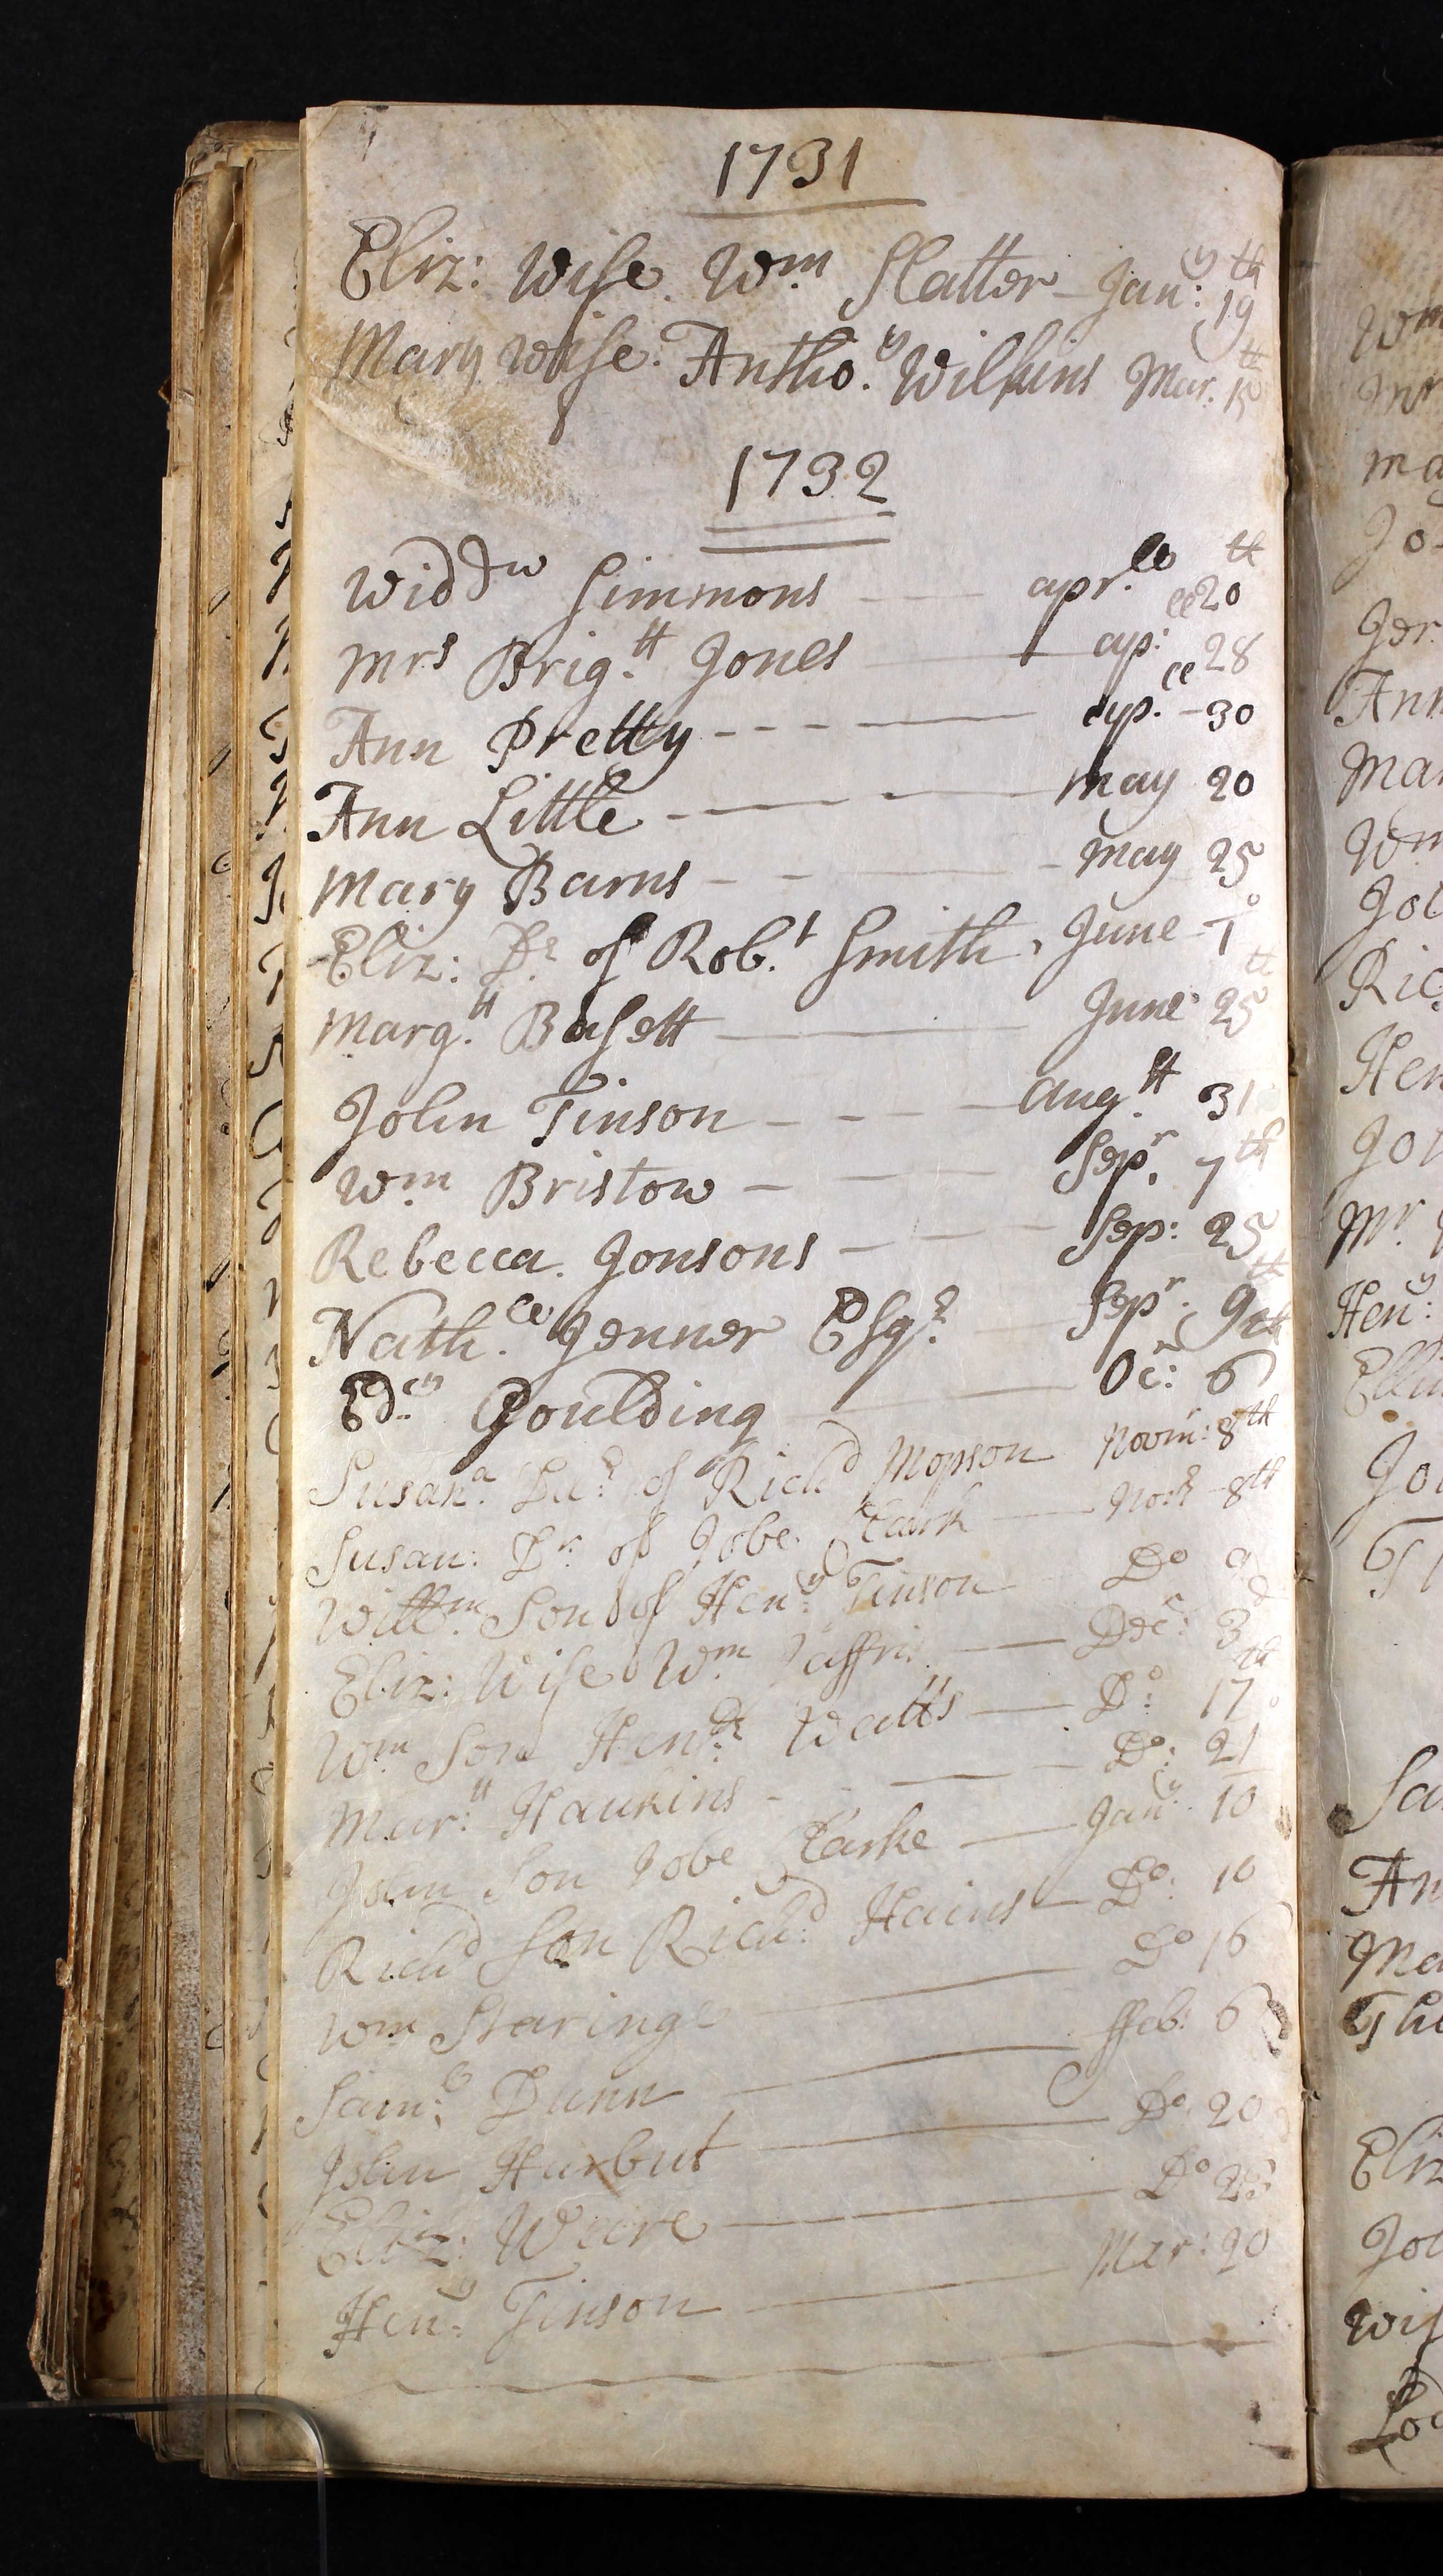 1731
Eliz: Wife Wm Slatter Jan:y 19th
Mary Wife Antho:y Wilkins Mar: 15th
1732
Widdw Simmons apr.le 20th
Mrs Brig.tt Jones ap:le 28
Ann Pretty ap.le 30
Ann Little May 20
Mary Barns May 25
Eliz: Dr of Rob.t Smith June 1o
Marg.tt Basett June 25th
John Tinson aug.tt 31
Wm Bristow Sepr. 7th
Rebecca Jonsons Sep: 25
Nath.ll Jenner Esqr Sepr. 9th
Ed:w Goulding Oc:r 6
Susan:a Dar of Richd Mopson Novm:r 8th
Susan: Dr of Jobe Clark Nor 8th
Will:m Son of Hen:y Tinson Do 9
Eliz: Wife Wm Jaffris Dec:r 3d
Wm Son Hen:y Watts Do: 17th
Mar:tt Haukins Do: 21
John Son Jobe Clarke Jan:y 10
Richd Son Richd Hains Do: 16
Wm Staringe Do 16
Sam:ll Dunn ffeb: 6
John Hurbut Do 20
Eliz: Weere Do
Hen:y Tinson Mar: 20